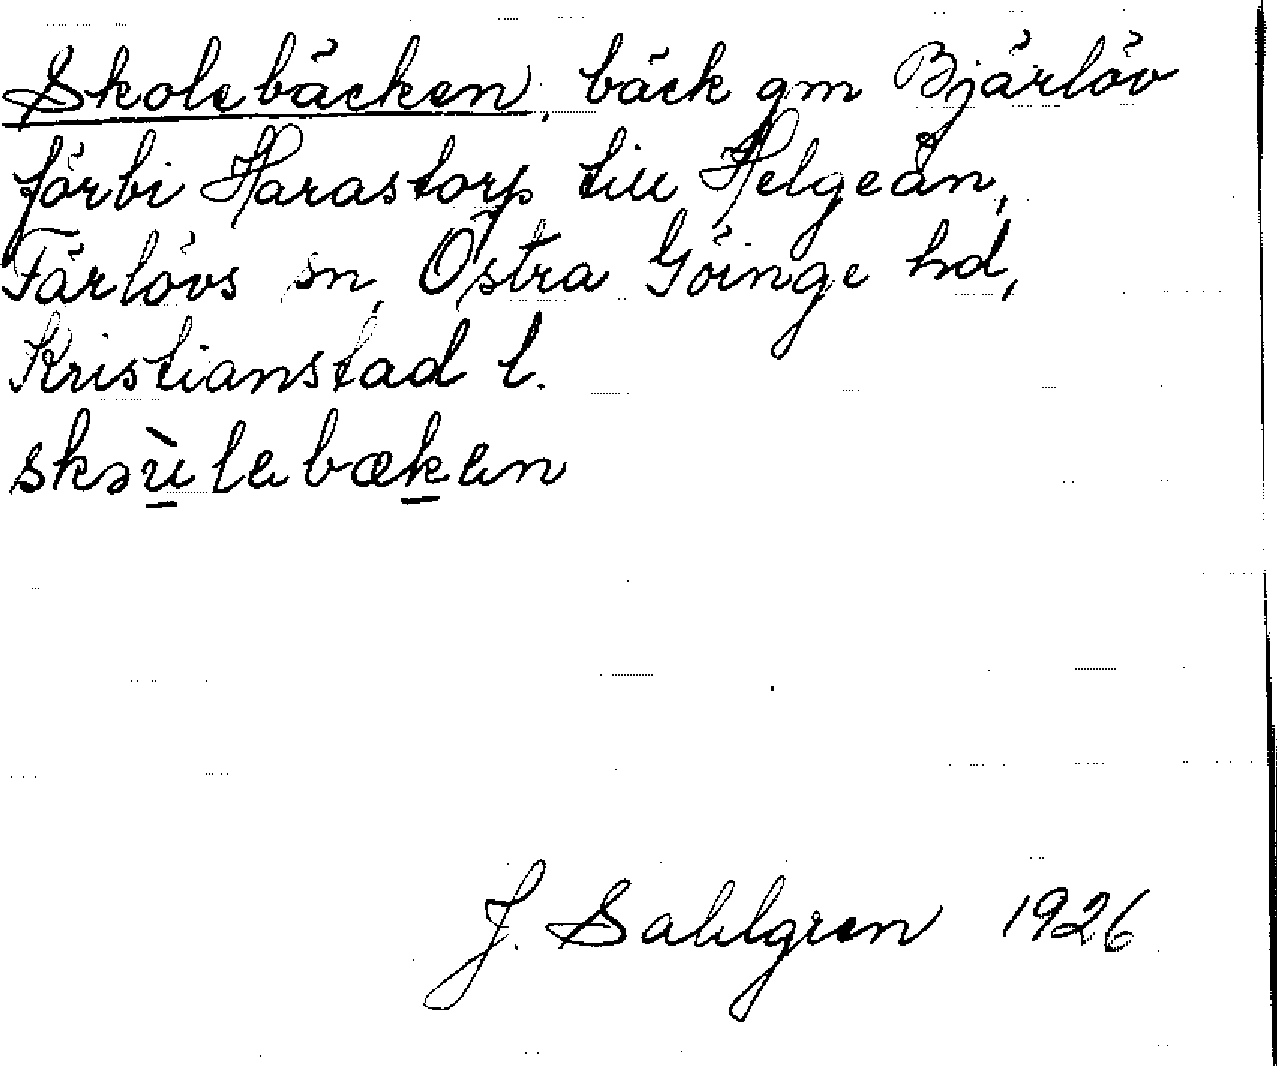 Skolebäcken, bäck gm Bjärlöv
förbi Harastorp till Helgeån,
Färlövs sn, Östra Göinge hd,
Kristianstad l.
skəùlebæken
J. Sahlgren 1926